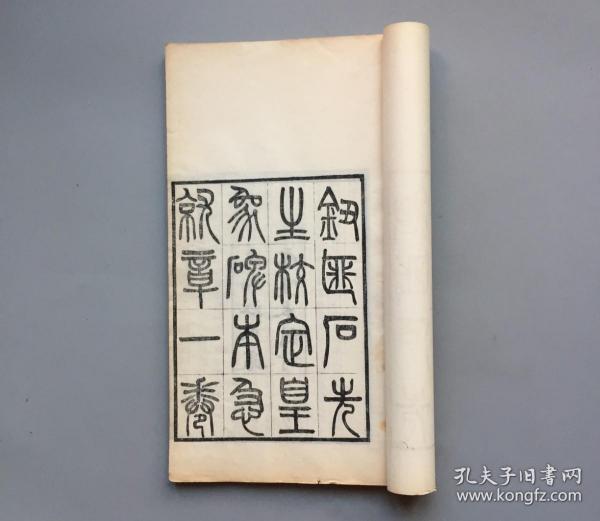 鈕匪石先
生校定皇
象碑本急
就章一卷
孔夫子旧书网
www.kongfz.com